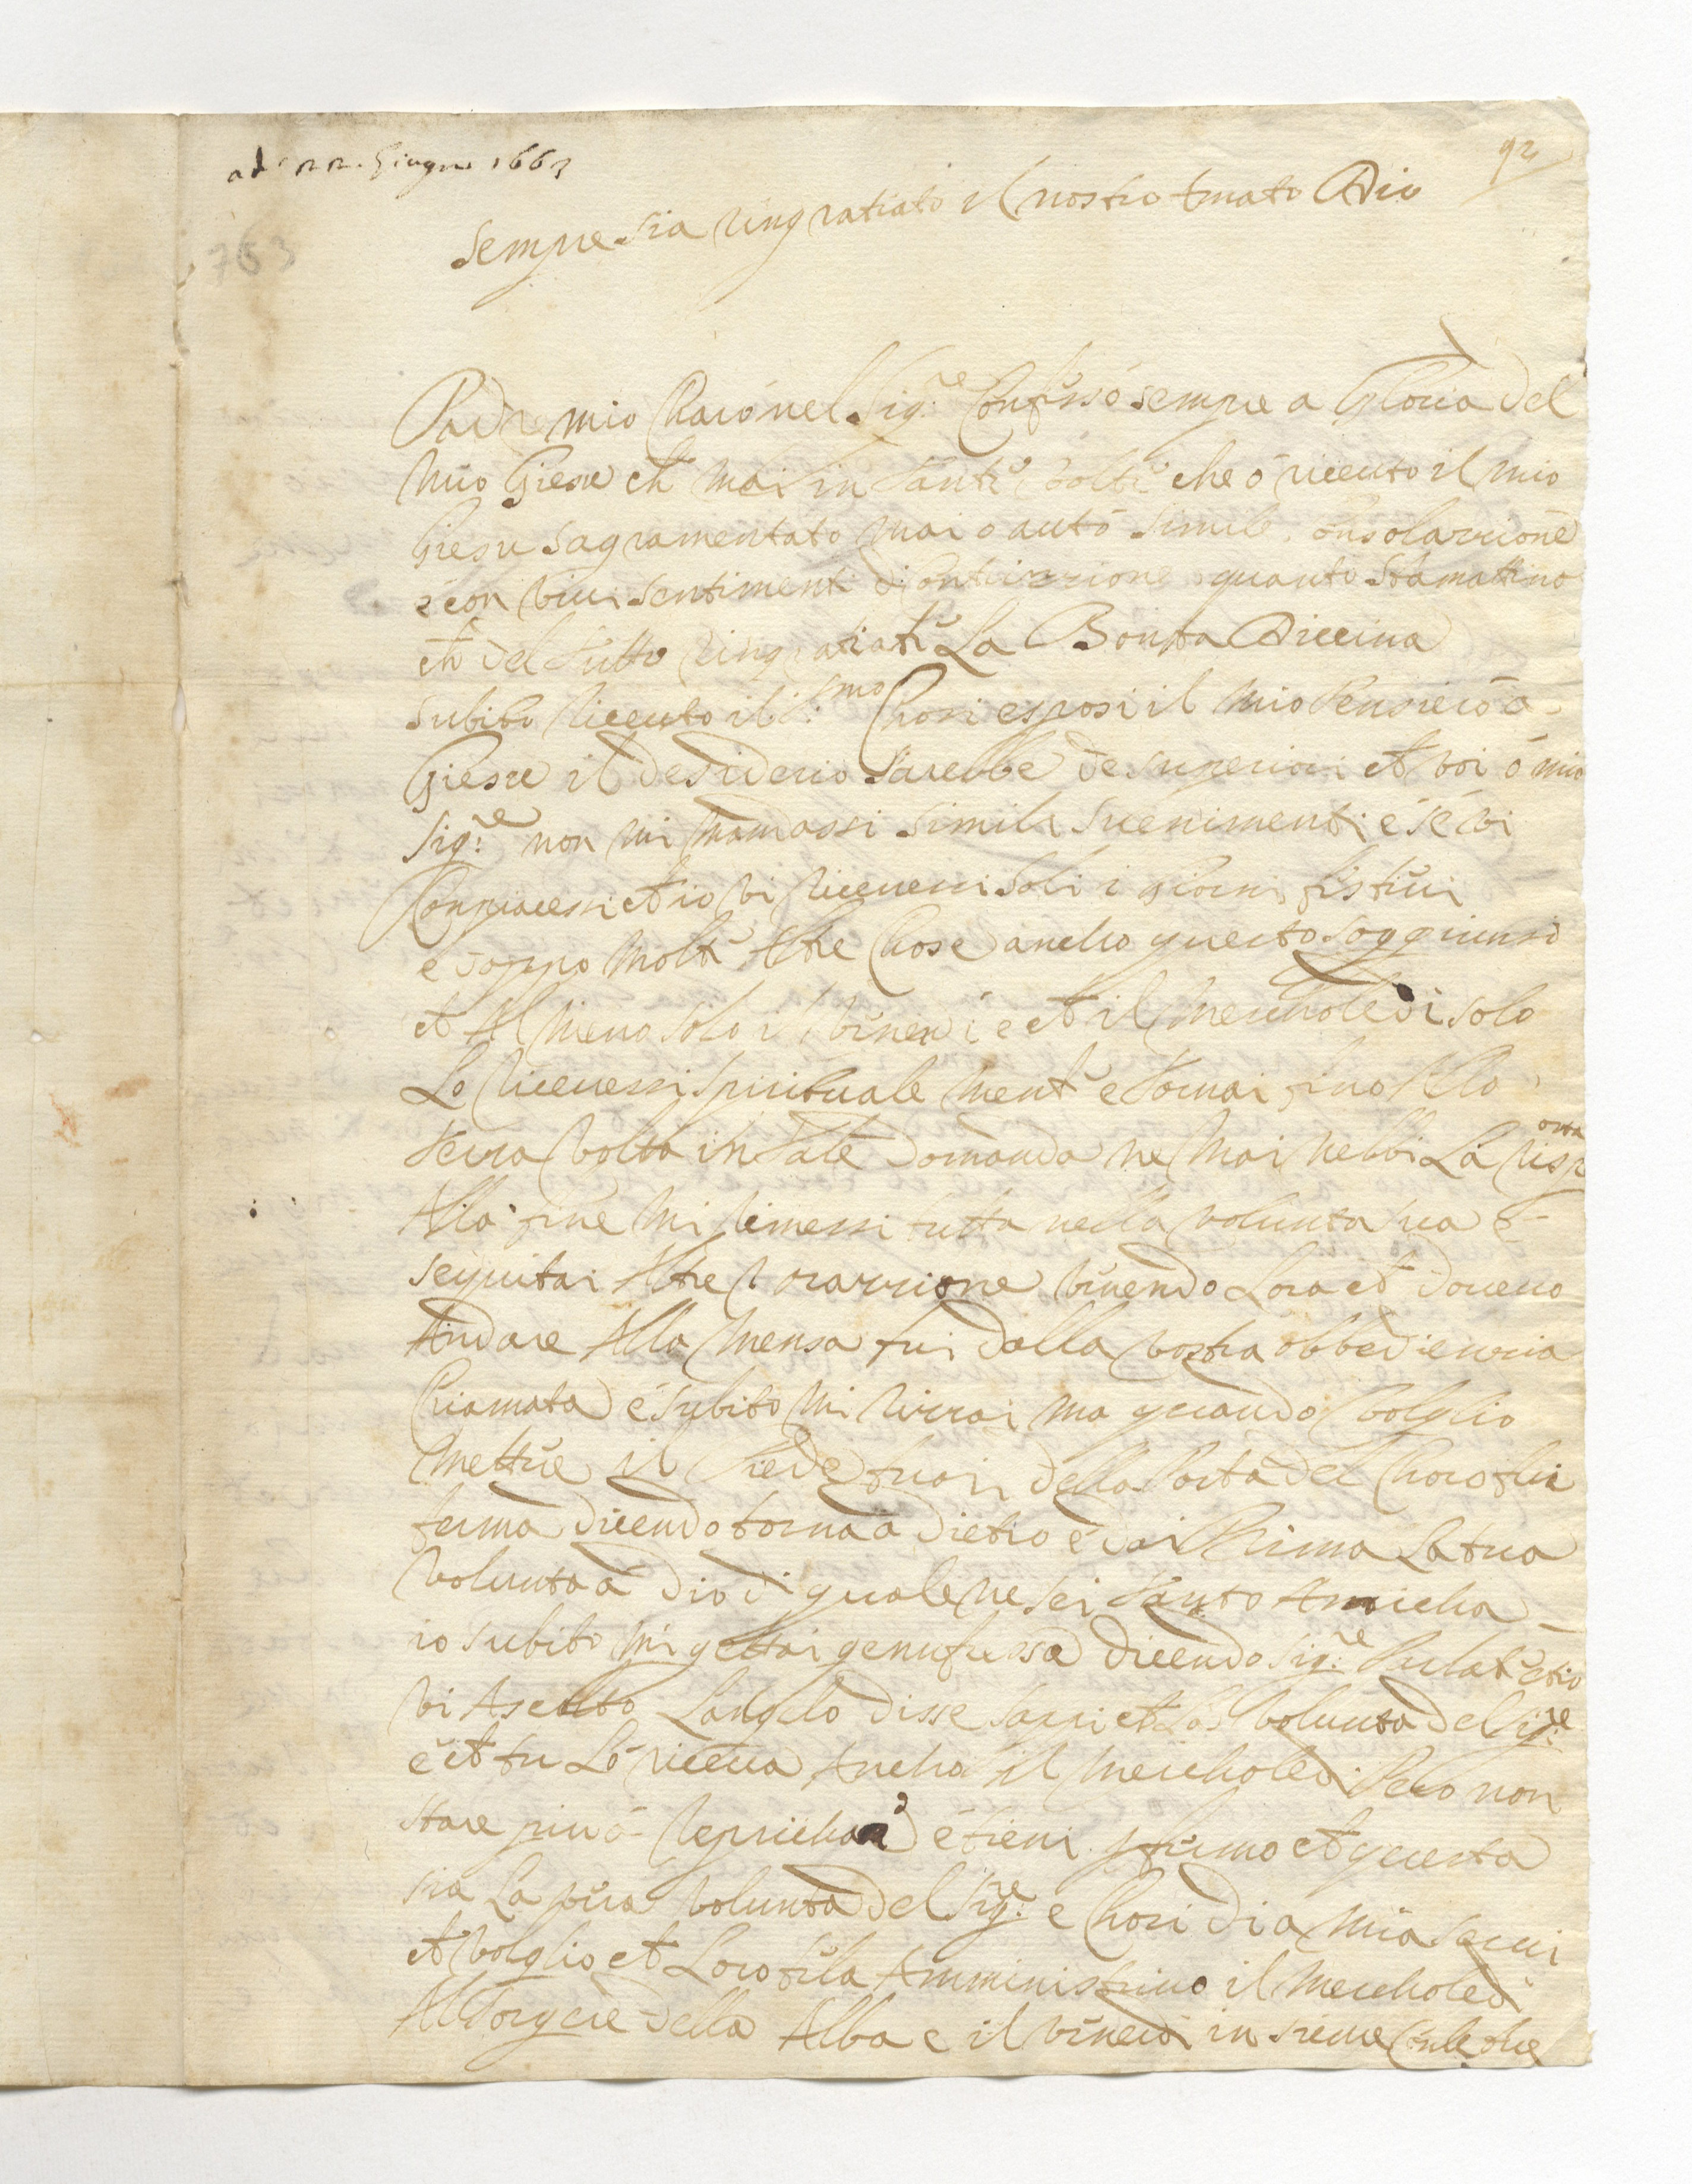 ad 22. Giugno 1663
92
763
Sempre sia ringratiato il nostro Amato Dio
Padre mio Charo nel Sig.re Confesso sempre a Gloria del
mio Giesu ch mai in tante volte che ó riceuto il mio
Giesu sagramentato mai o auto simile consolazzione
e con viui sentimenti di Contrizzione quanto stamattina
ch del tutto ringratiate La Bonta Diuina
subito riceuto il S:mo Chosi esposi il mio Pensiero a
Giesu il desiderio sarebbe de superiori ch voi ó mio
Sig:re non mi mandassi simili suenimenti é sé vi
Compiacessi ch io vi riceuessi soli i giorni festiui
e doppo molte Altre Chose ancho questo soggiunsi
ch Al meno solo il venerdi e ch il merchole di solo
Lo riceuessi spirituale mente e tornai fino Alla
terza volta in tale domanda ne mai nebbi La risp
osta
Alla fine mi rimessi tutta nella volunta sua e
seguitai Altre orazzione venendo Lora ch doueuo
Andare Alla mensa fui dalla vostra obbedienzia
Chiamata é subito mi rizzai ma quando volglio
mettere il Piede fuori della Porta del Choro fui
ferma dicendo torna a dietro é dai Prima La tua
volunta á dio di quale ne sei tanto Amicha
io subito mi gettai genufressa dicendo Sig:re Parlate ch io
vi Ascolto Langelo disse sappi ch La volunta del Sig:re
é ch tu Lo riceua Ancho il merchole di Pero non
stare piu á reprichare é tieni fermo ch questa
sia La vera volunta del Sig:re e Chosi di a mia serui
ch volglio ch Loro te la Amministrino il merchole di
Al sorgere della Alba e il venerdi in sieme Con le Altre